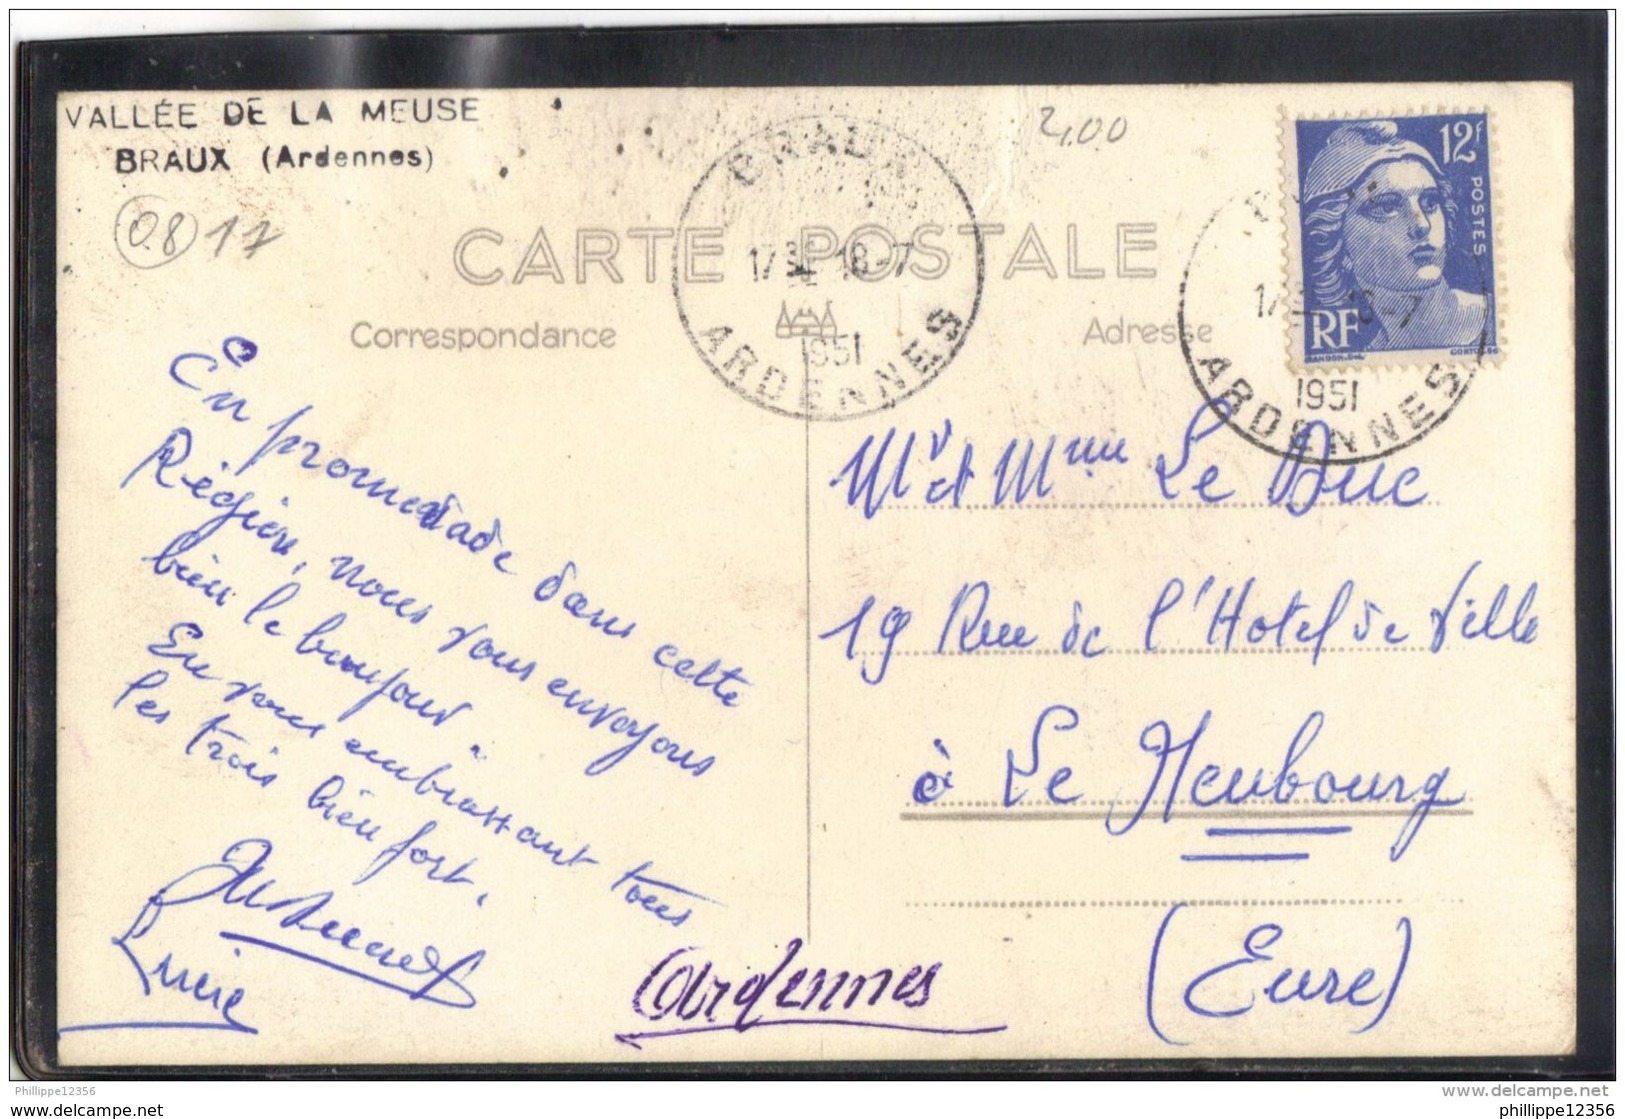 VALLÉE DE LA MEUSE
BRAUX (Ardennes)
08 17
2,00
CARTE POSTALE
Correspondance
Adresse
BRAUX
18-7
1951
ARDENNES
12f
POSTES
RF
GANDON.DEL
18-7
1951
ARDENNES
En promenade dans cette
Région, nous vous envoyons
bien le bonjour.
En vous embrassant tous
les trois bien fort.
Lucie
Ardennes
Mr et Mme Le Duc
19 Rue de l'Hotel de Ville
à Le Neubourg
(Eure)
Philippe12356
philippe12356
delcampe.net
philippe12356